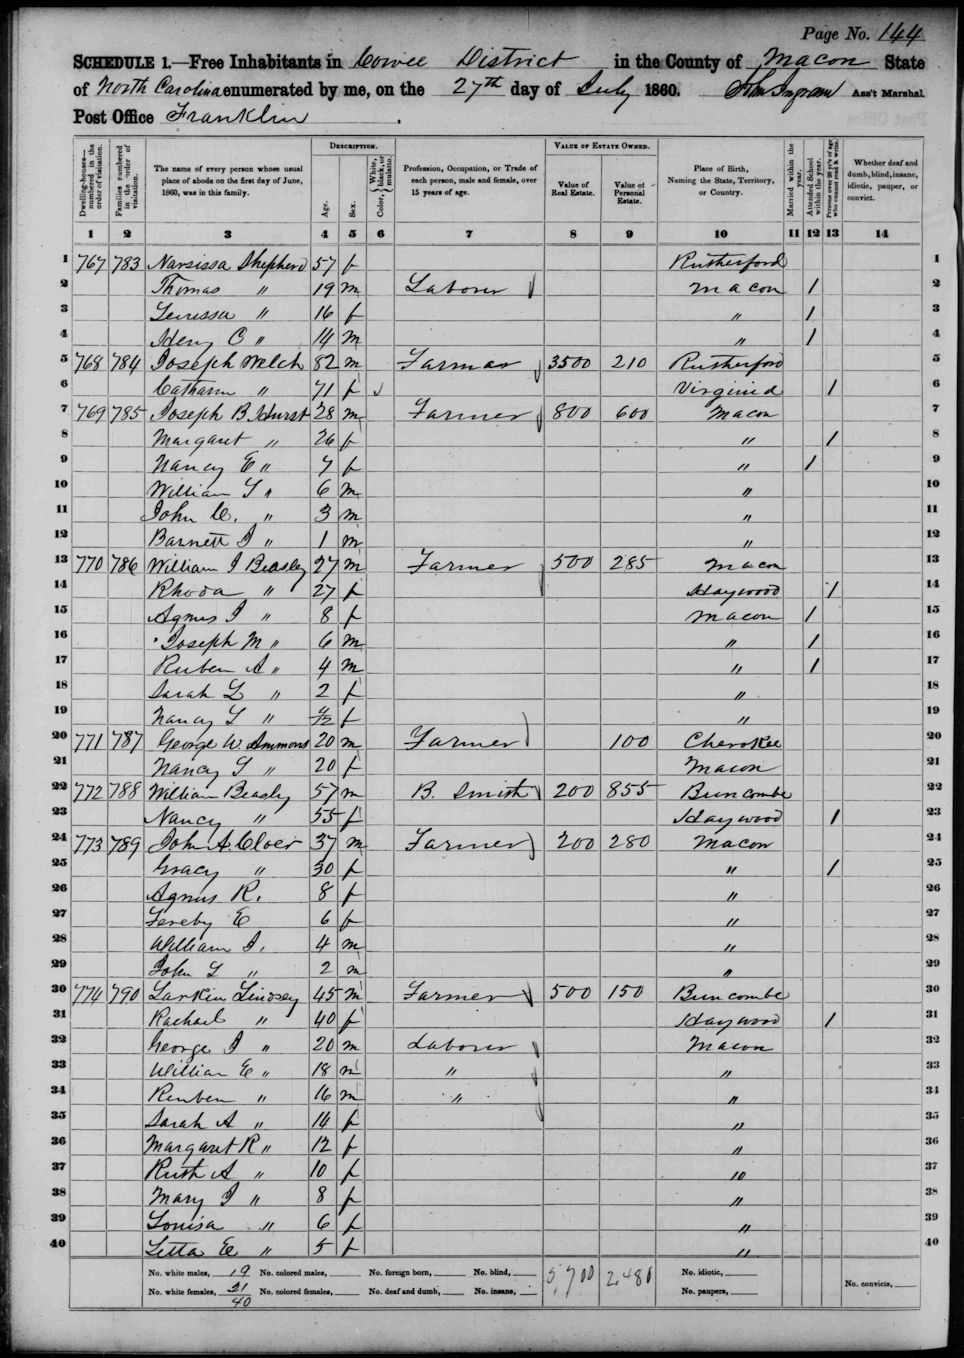 Page No. 144
SCHEDULE 1.—Free Inhabitants in Cowee District in the County of Macon State
of North Carolina enumerated by me, on the 27th day of July 1860. Ass't Marshal.
Post Office Franklin.
Dwelling-houses—numbered in the order of visitation.
Families numbered in the order of visitation.
The name of every person whose usual place of abode on the first day of June, 1860, was in this family.
DESCRIPTION.
Age.
Sex.
Color, White, black, or mulatto.
Profession, Occupation, or Trade of each person, male and female, over 15 years of age.
VALUE OF ESTATE OWNED.
Value of Real Estate.
Value of Personal Estate.
Place of Birth, Naming the State, Territory, or Country.
Married within the year.
Attended School within the year.
Persons over 20 y'rs of age who cannot read & write.
Whether deaf and dumb, blind, insane, idiotic, pauper, or convict.
1 2 3 4 5 6 7 8 9 10 11 12 13 14
1 767 783 Narsissa Shepherd 57 f Rutherford 1
2 Thomas " 19 m Laborer Macon / 2
3 " 16 f " / 3
4 Henry C " 14 m " / 4
5 768 784 Joseph Welch 82 m Farmer 3500 210 Rutherford 5
6 Catharin " 71 f Virginia / 6
7 769 785 Joseph B Hurst 28 m Farmer 800 600 Macon 7
8 Margaret " 26 f " / 8
9 Nancy E " 7 f " / 9
10 William " 6 m " 10
11 John C. " 3 m " 11
12 Barnett J " 1 m " 12
13 770 786 William J Beasley 27 m Farmer 500 285 Macon 13
14 Rhoda " 27 f Haywood / 14
15 Agnes J " 8 f Macon / 15
16 Joseph M " 6 m " / 16
17 Ruben A " 4 m " / 17
18 Sarah L " 2 f " 18
19 Nancy " f " 19
20 771 787 George W. Ammons 20 m Farmer 100 Cherokee 20
21 Nancy " 20 f Macon 21
22 772 788 William Beasly 57 m B. Smith 200 855 Buncombe 22
23 Nancy " 55 f Haywood / 23
24 773 789 John A. Cloer 37 m Farmer 200 280 Macon 24
25 Gracy " 30 f " / 25
26 Agnes R. 8 f " 26
27 Fereby E 6 f " 27
28 William J. 4 m " 28
29 John " 2 m " 29
30 774 790 Larkin Lindsey 45 m Farmer 500 150 Buncombe 30
31 Rachael " 40 f Haywood / 31
32 George J " 20 m Laborer Macon 32
33 William E " 18 m " " 33
34 Reuben " 16 m " " 34
35 Sarah A " 14 f " 35
36 Margaret R " 12 f " 36
37 Ruth A " 10 f " 37
38 Mary J " 8 f " 38
39 Louisa " 6 f " 39
40 Letta E " 5 f " 40
No. white males, 19 No. colored males, No. foreign born, No. blind, 5,700 2,480 No. idiotic,
No. white females, 21 No. colored females, No. deaf and dumb, No. insane, No. paupers, No. convicts,
40